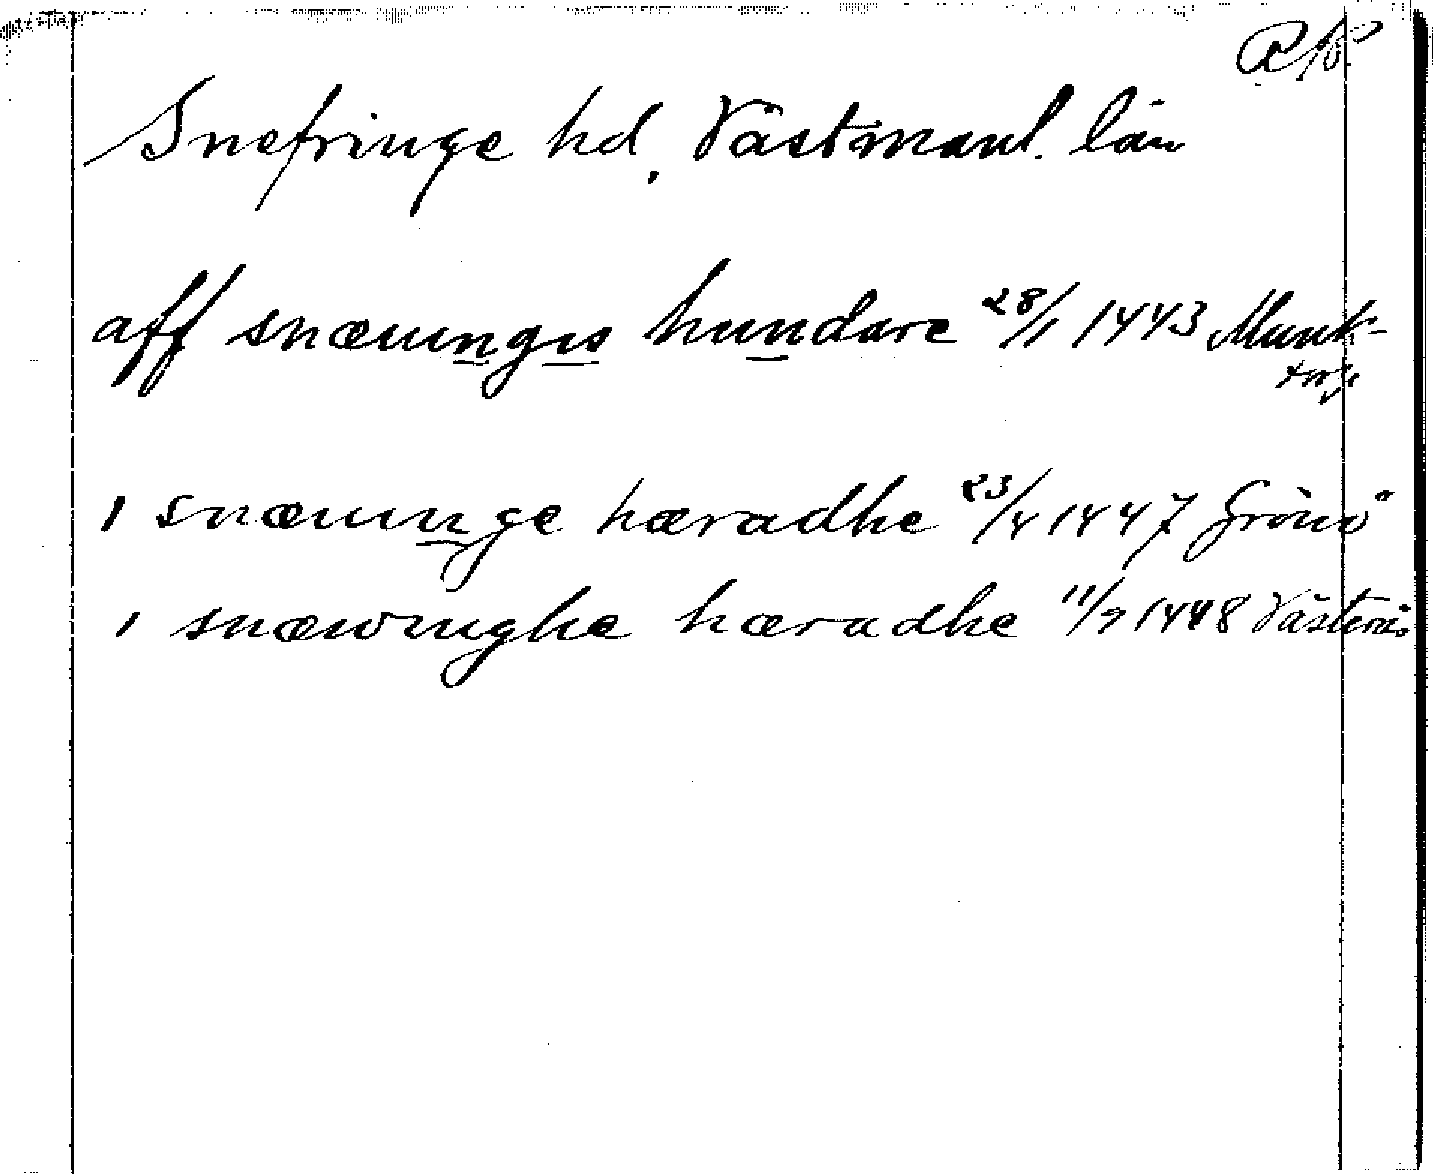 Snefringe hd, Västmanl. län
aff snæuungis hundare 28/1 1443 Munk-
torp
i snæuunge hæradhe 23/4 1447 Grönö
i snæwinghe hæradhe 11/7 1448 Västerås